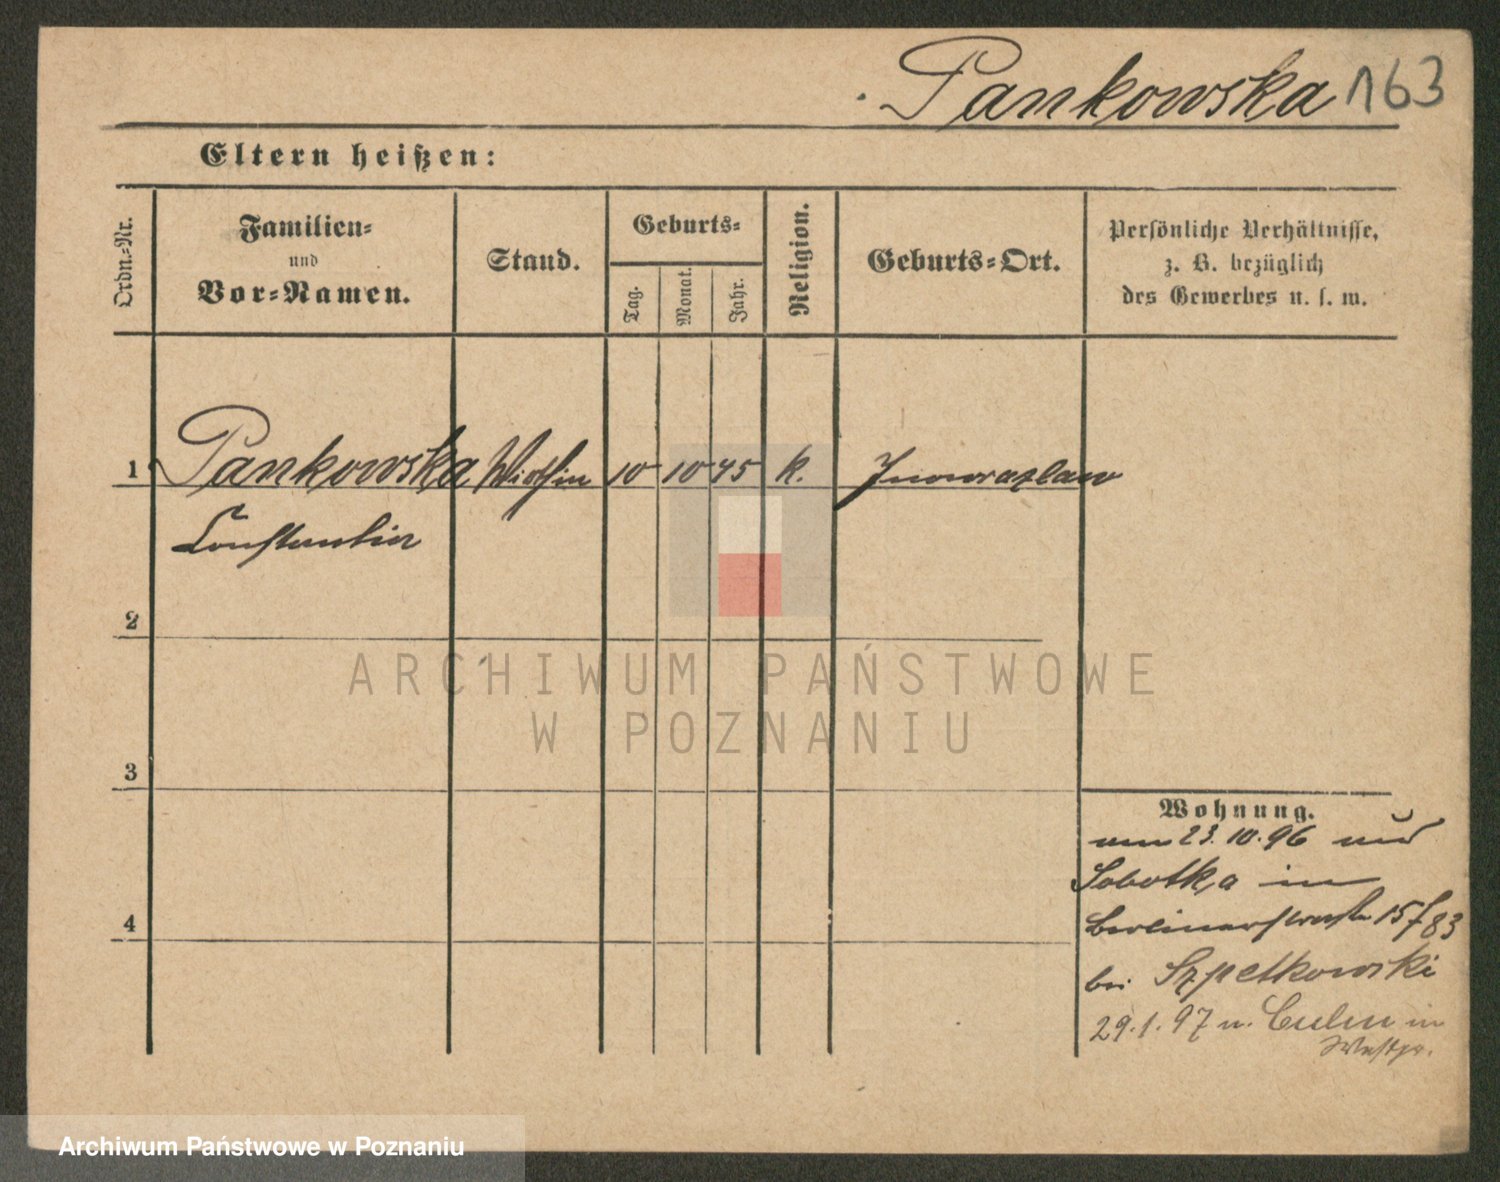 Pankowska 163
Eltern heißen:
Ordn.-Nr.
Familien-
und
Vor-Namen.
Stand.
Geburts-
Tag.
Monat.
Jahr.
Religion.
Geburts-Ort.
Persönliche Verhältnisse,
z. B. bezüglich
des Gewerbes u. s. w.
1 Pankowska Wirthin 10 10 45 k. Inowrazlaw
Constantia
2
3
4
ARCHIWUM PAŃSTWOWE
W POZNANIU
Wohnung.
23.10.96
Sobotka in
Berlinerstrasse 15
bei Szpetkowski
29.1.97 n. Culm in
Westpr.
Archiwum Państwowe w Poznaniu